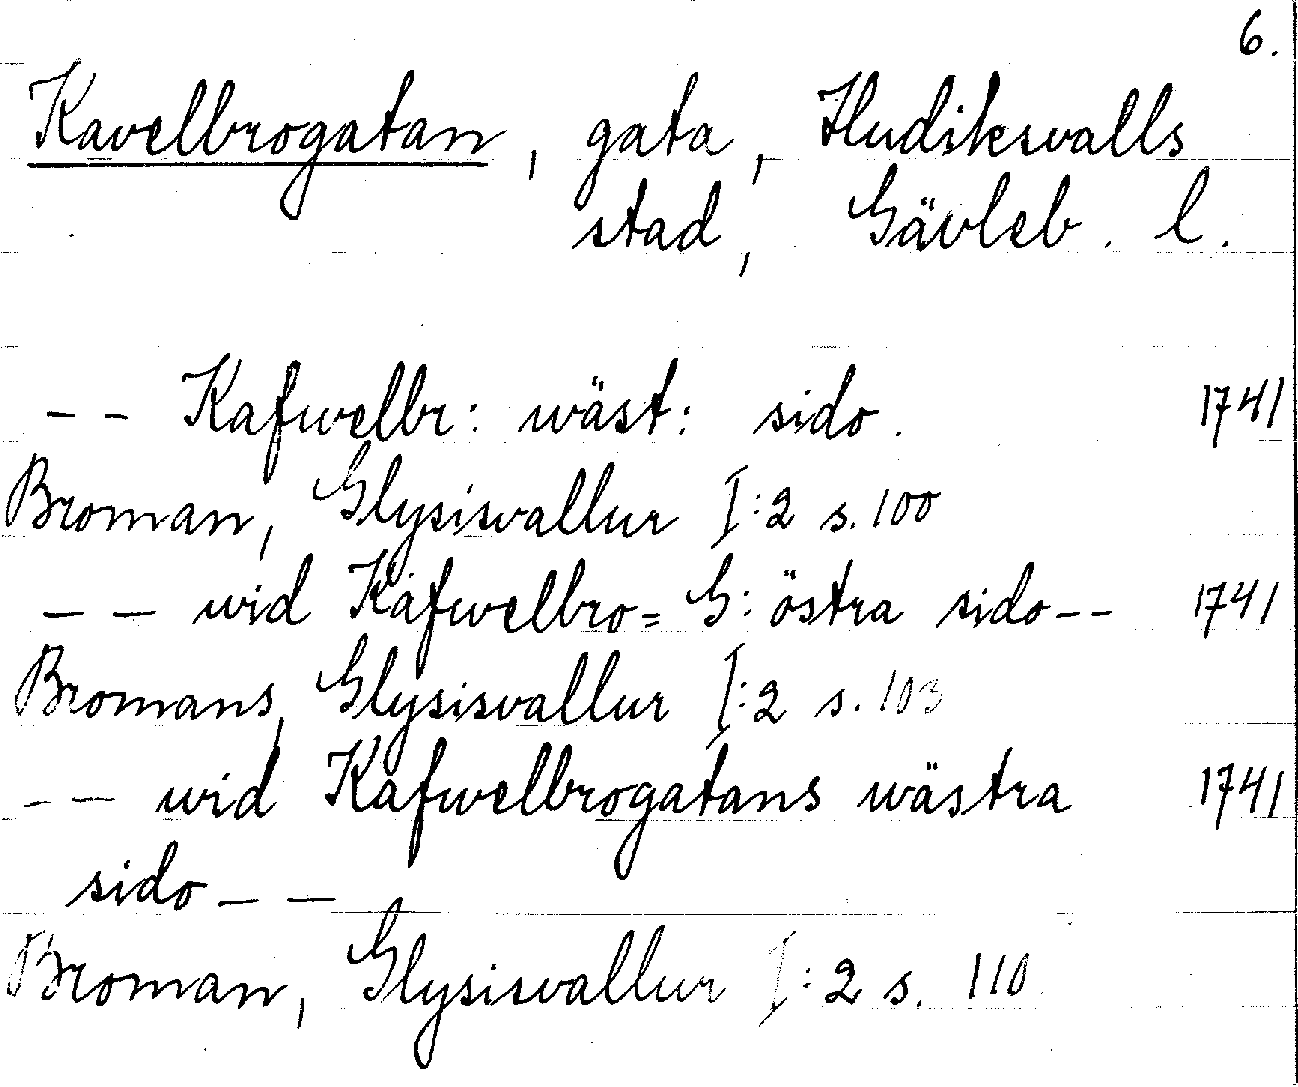 6.
Kavelbrogatan, gata, Hudiksvalls
stad, Gävleb. l.
-- Kafwelbr: wäst: sido. 1741
Broman, Glysisvallur I:2 s. 100
-- wid Kafwelbro= G: östra sido -- 1741
Bromans, Glysisvallur I:2 s. 103
-- wid Kafwelbrogatans wästra 1741
sido --
Broman, Glysisvallur I:2 s. 110